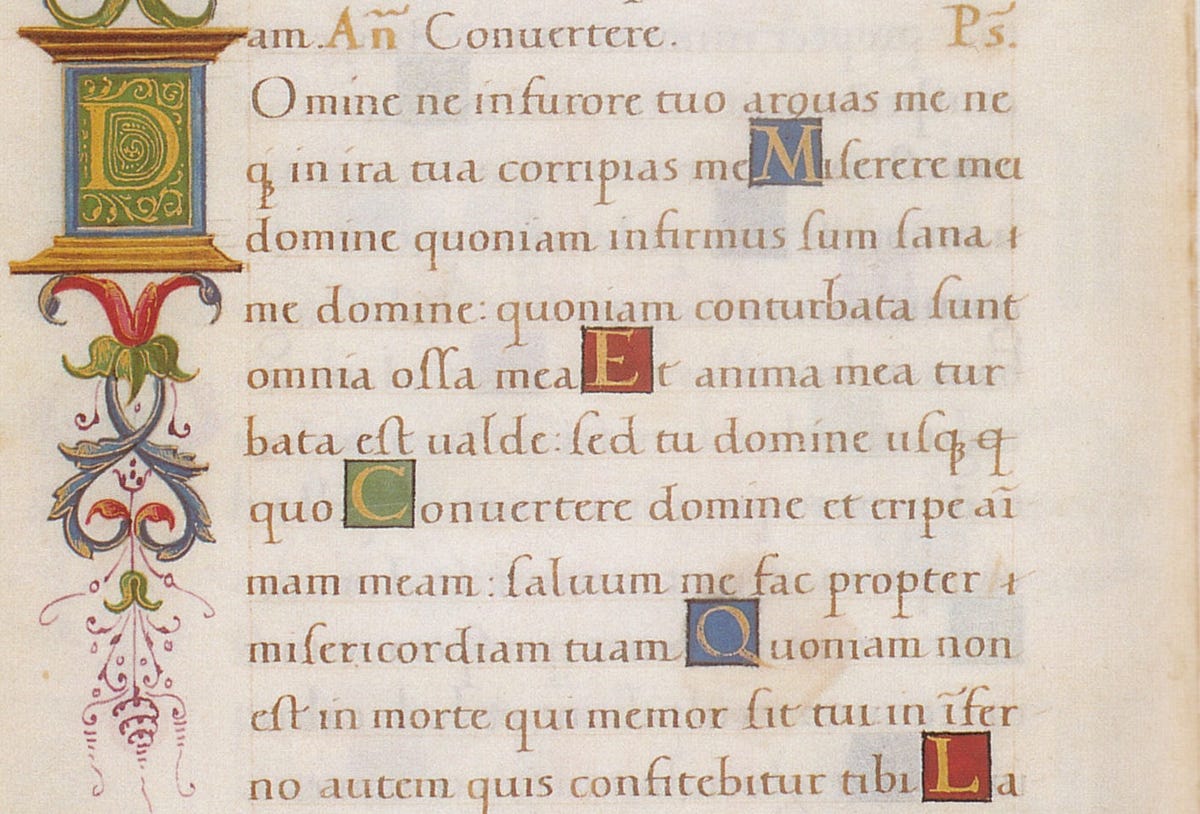 am. Añ Conuertere. Ps̃.
D Omine ne in furore tuo arguas me ne
qꝫ in ira tua corripias me Miſerere mei
domine quoniam infirmus ſum ſana
me domine: quoniam conturbata ſunt
omnia oſſa mea Et anima mea tur
bata eſt ualde: ſed tu domine uſqꝫ q̶
quo Conuertere domine et eripe aı̃
mam meam: ſaluum me fac propter
miſericordiam tuam Quoniam non
eſt in morte qui memor ſit tui in ı̃fer
no autem quis confitebitur tibi La